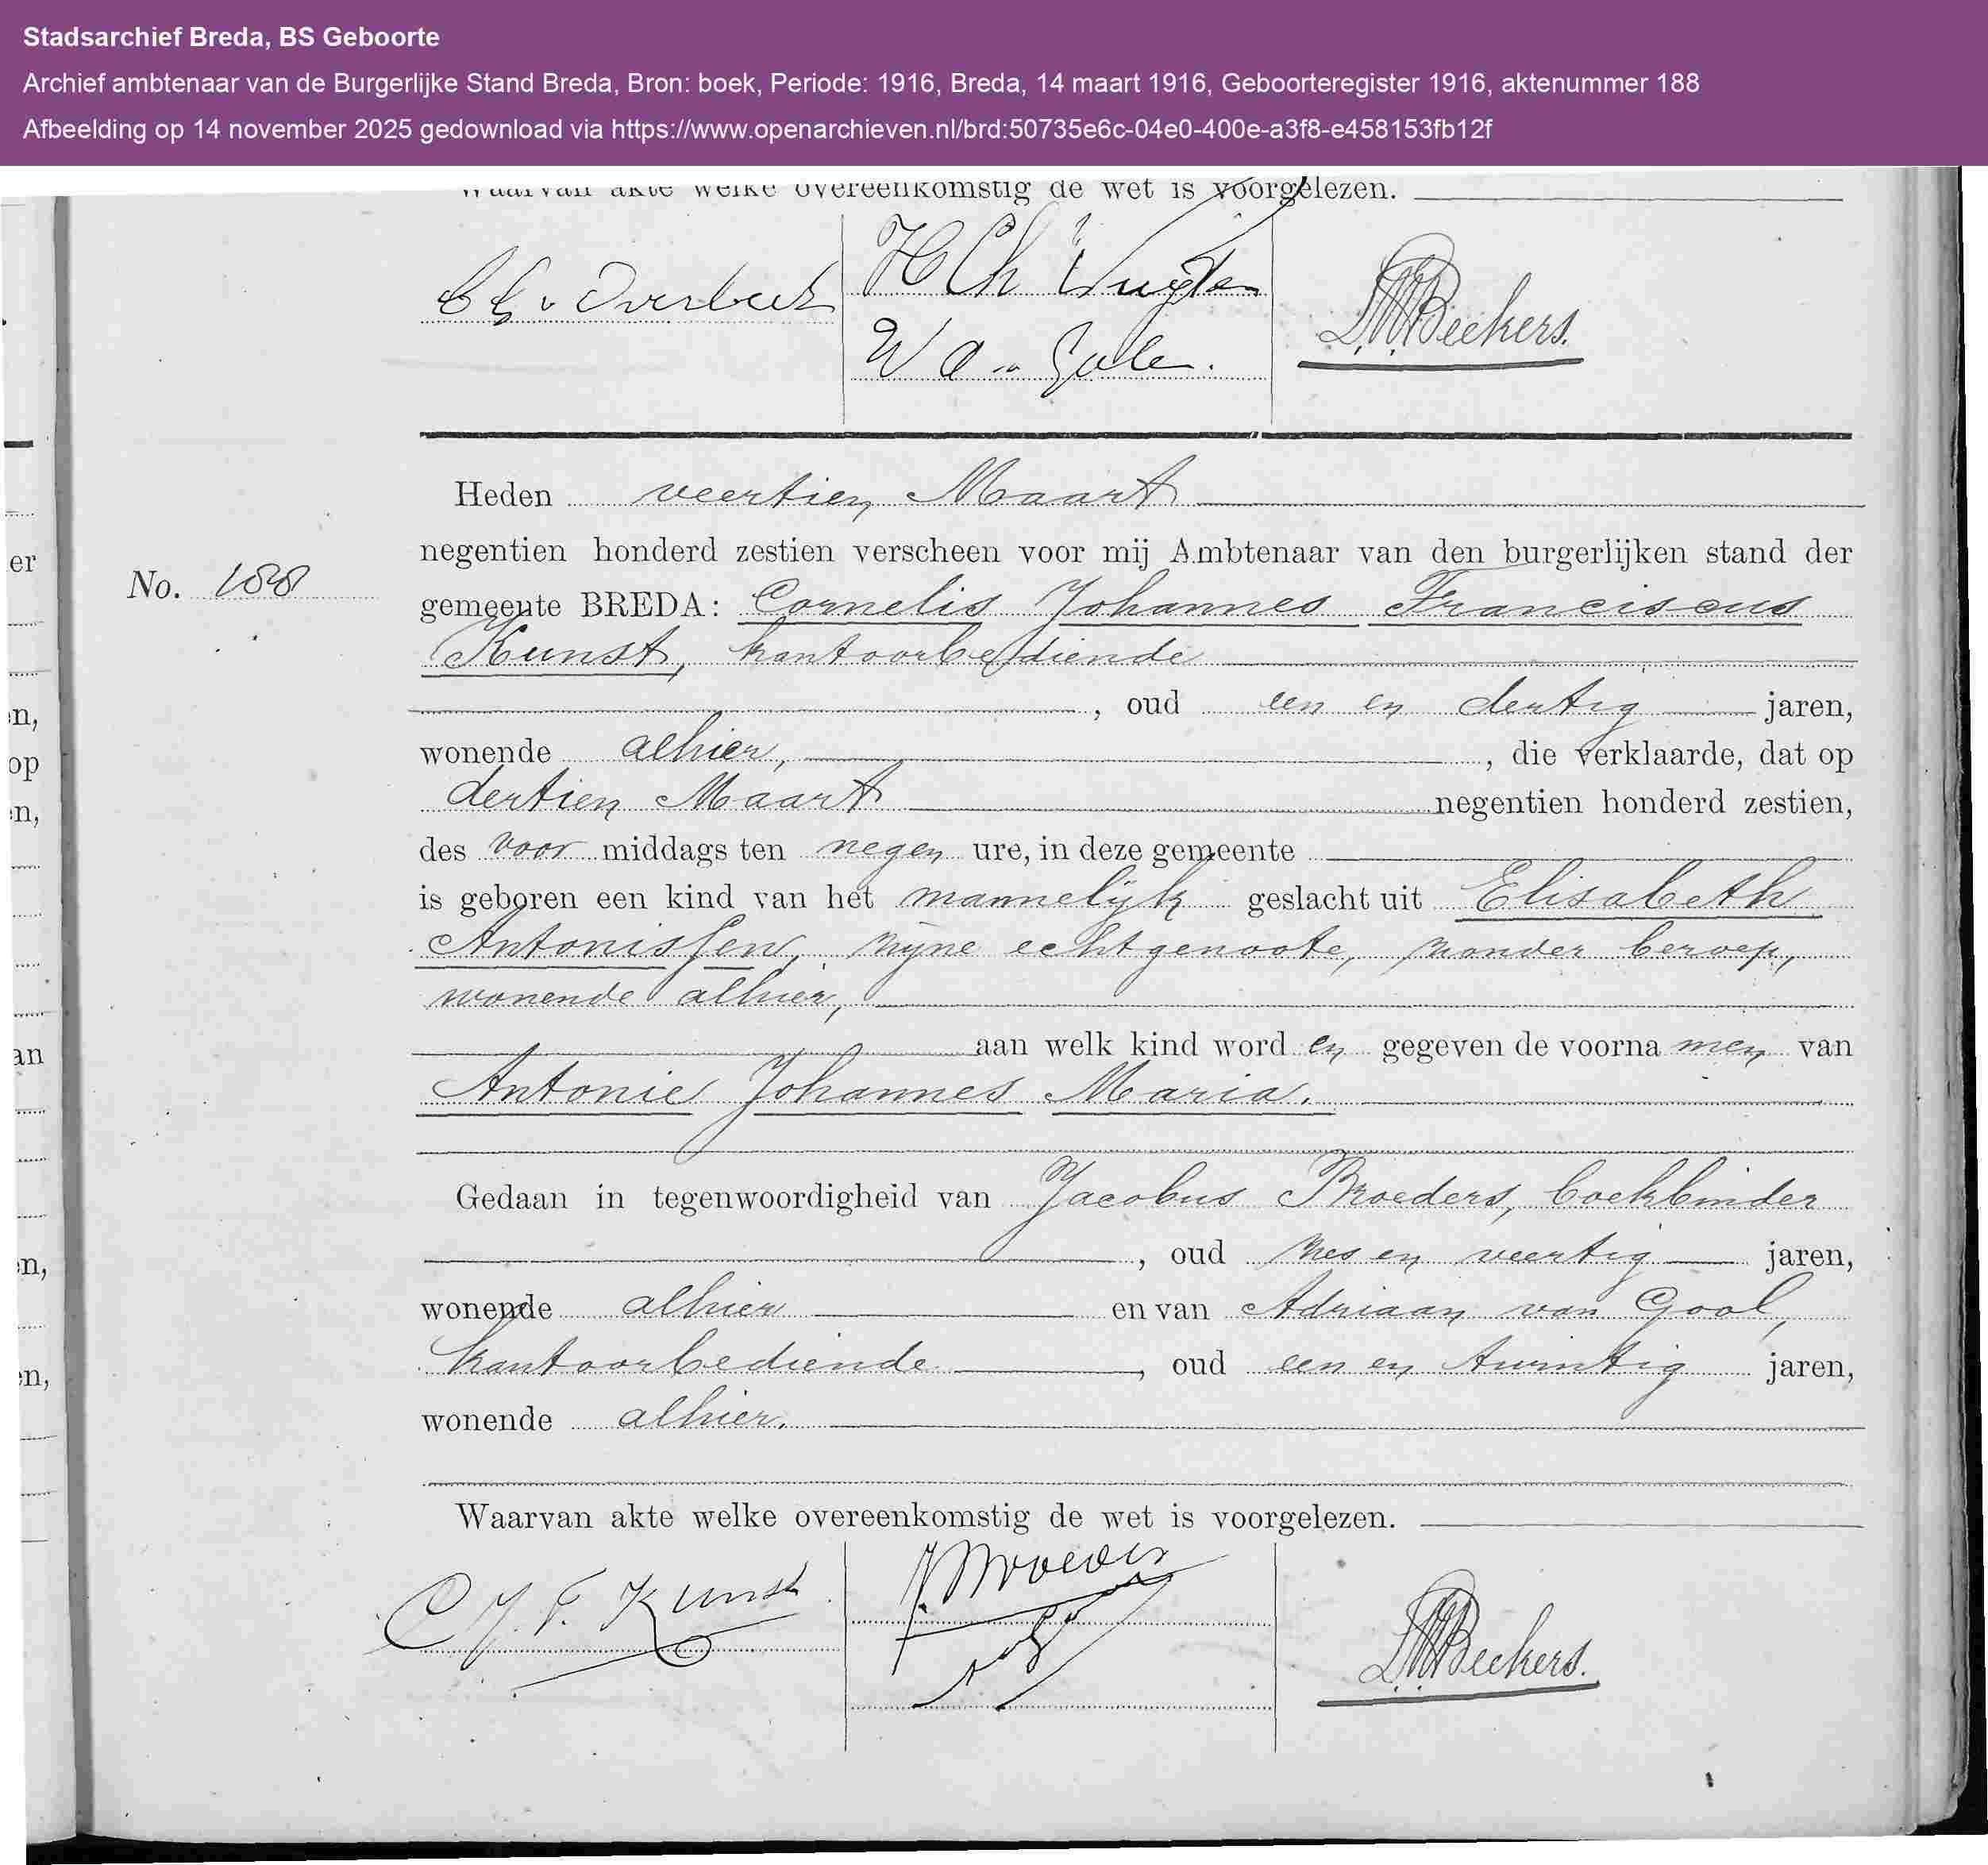 Stadsarchief Breda, BS Geboorte
Archief ambtenaar van de Burgerlijke Stand Breda, Bron: boek, Periode: 1916, Breda, 14 maart 1916, Geboorteregister 1916, aktenummer 188
Afbeelding op 14 november 2025 gedownload via https://www.openarchieven.nl/brd:50735e6c-04e0-400e-a3f8-e458153fb12f
Waarvan akte welke overeenkomstig de wet is voorgelezen.
v Overbeek
H Ch
W
Beekers.
Heden veertien Maart
negentien honderd zestien verscheen voor mij Ambtenaar van den burgerlijken stand der
No. 188
gemeente BREDA: Cornelis Johannes Franciscus
Kunst, kantoorbediende
, oud een en dertig jaren,
wonende alhier, , die verklaarde, dat op
dertien Maart negentien honderd zestien,
des voor middags ten negen ure, in deze gemeente
is geboren een kind van het mannelijk geslacht uit Elisabeth
Antonissen, mijne echtgenoote, zonder beroep,
wonende alhier,
aan welk kind word en gegeven de voorna men van
Antonie Johannes Maria.
Gedaan in tegenwoordigheid van Jacobus Broeders, boekbinder
, oud zes en veertig jaren,
wonende alhier en van Adriaan van Gool,
kantoorbediende , oud een en twintig jaren,
wonende alhier.
Waarvan akte welke overeenkomstig de wet is voorgelezen.
C J. F. Kunst
J. Broeders
Beekers.
er
en,
op
en,
an
en,
en,